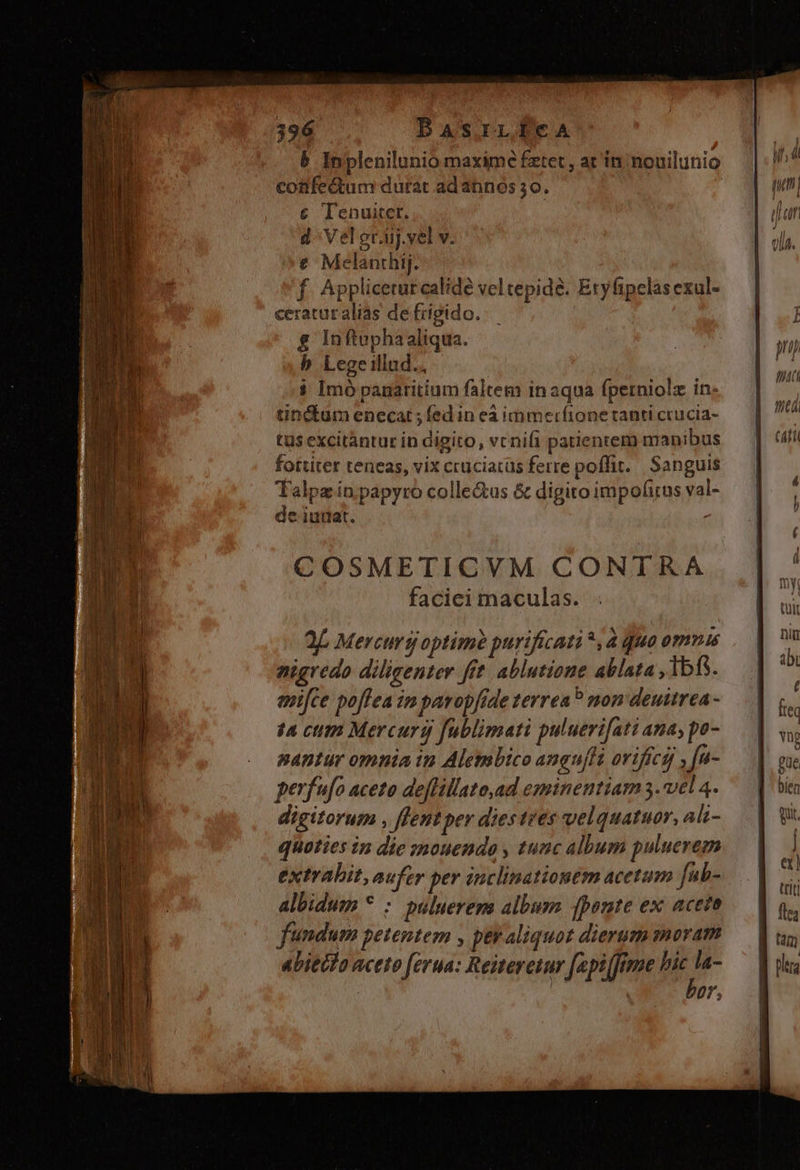 396 BASILICA
b In plenilunio maximè fœtet, at in nouilunio
confectum durat ad annos 30.
c Tenuiter.
d Vel gr. iij. vel v.
e Melanthij.
f Applicetur calidè vel tepidè. Erysipelas exul-
ceratur aliàs de frigido.
g In stupha aliqua.
h Lege illud.
i Imò panaritium saltem in aqua sperniolæ in-
tinctum enecat; sed in eâ immersione tanti crucia-
tus excitantur in digito, vt nisi patientem manibus
fortiter teneas, vix cruciatus ferre possit. Sanguis
Talpæ in papyro collectus & digito impositus val-
de iuuat.
COSMETICVM CONTRA
faciei maculas.
♃ Mercurij optimè purificati ª, à quo omnis
nigredo diligenter fit ablutione ablata, ℔ß.
misce postea in paropside terrea ᵇ non deuitrea-
ta cum Mercurij sublimati puluerisati ana, po-
nantur omnia in Alembico angusti orificij, su-
perfuso aceto destillato, ad eminentiam 3. vel 4.
digitorum, stent per dies tres vel quatuor, ali-
quoties in die mouendo, tunc album puluerem
extrahit, aufer per inclinationem acetum sub-
albidum ᶜ : puluerem album sponte ex aceto
fundum petentem, per aliquot dierum moram
abiecto aceto serua: Reiteretur sæpissime hic la-
bor,